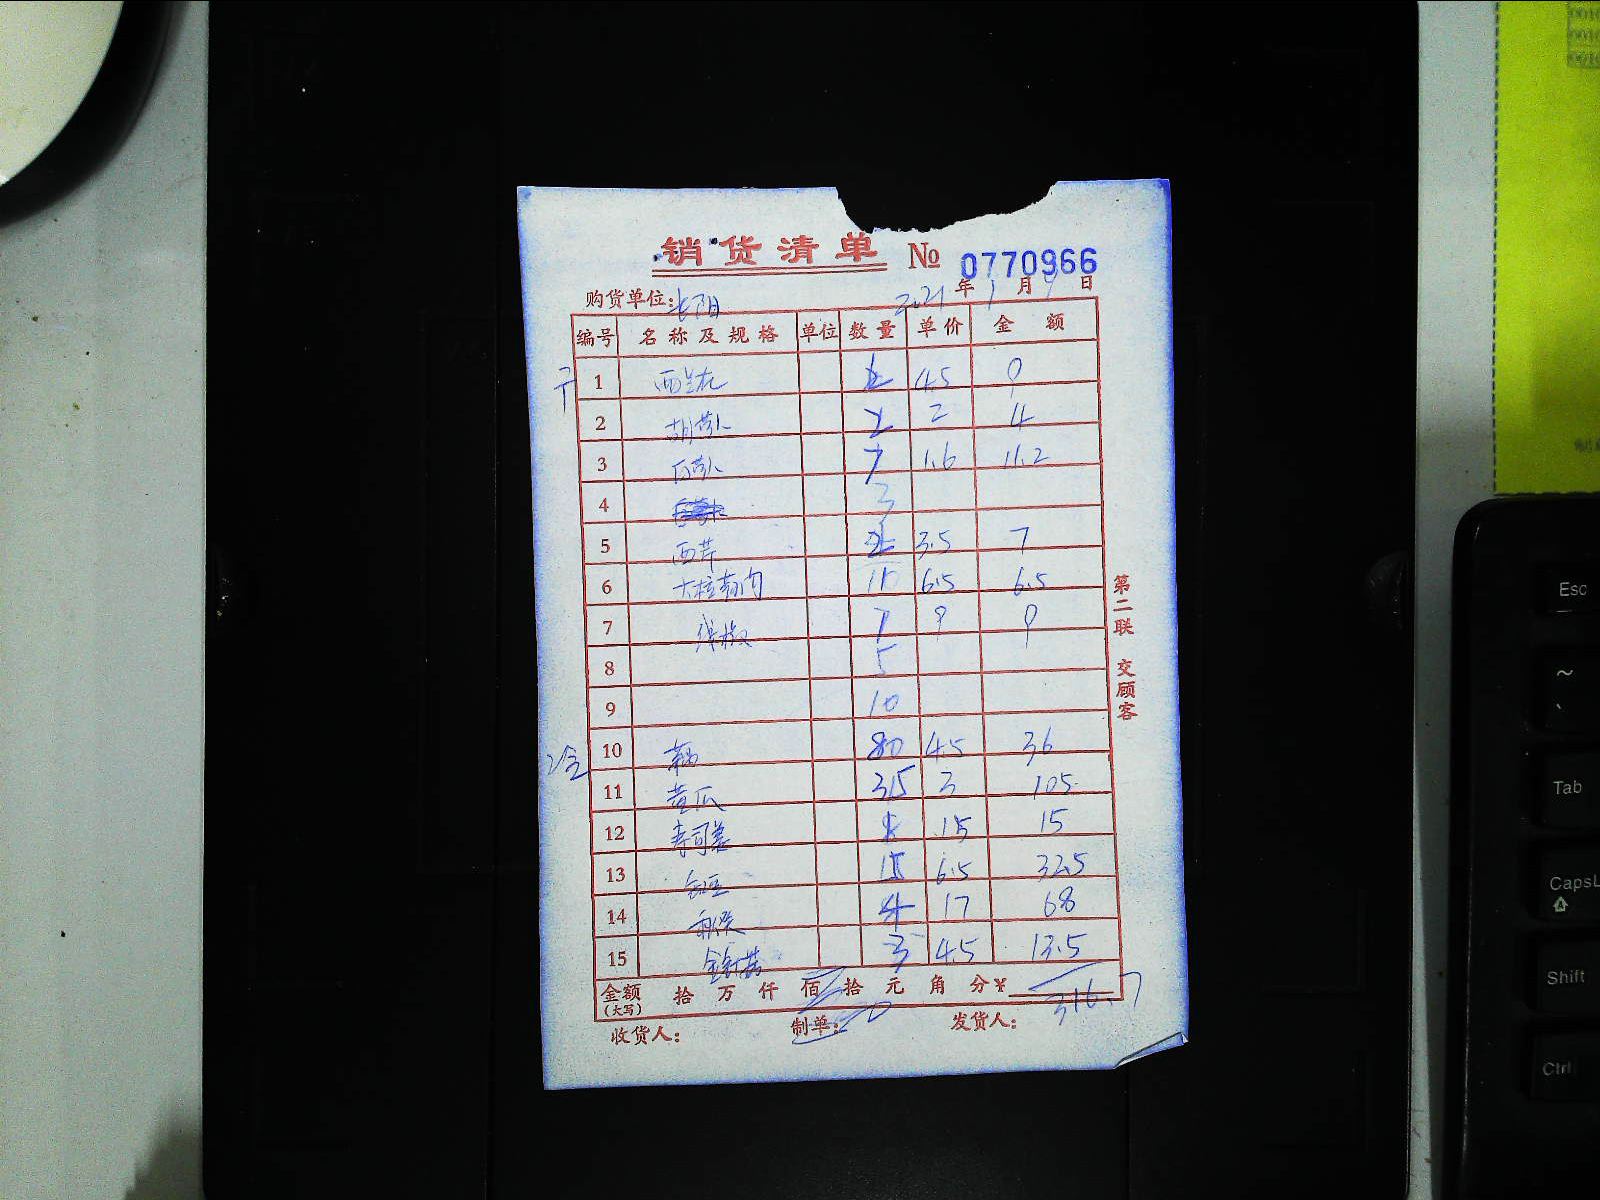 销货清单 № 0770966
购货单位: 长阳 2021年1月9日
编号 名称及规格 单位 数量 单价 金额
1 西兰花 2 4.5 9
2 胡萝卜 2 2 4
3 白萝卜 7 1.6 11.2
4 3
5 西芹 2 3.5 7
6 6.5 6.5
7 线椒 1 9 9
8 5
9 10
10 藕 8 4.5 36
11 黄瓜 35 3 105
12 寿司姜 1 15 15
13 6.5 32.5
14 4 17 68
15 金针菇 3 4.5 13.5
金额(大写) 拾 万 仟 佰 拾 元 角 分 ¥ 316.7
收货人: 制单: 发货人:
第二联 交顾客
Esc
~
Tab
CapsL
Shift
Ctrl